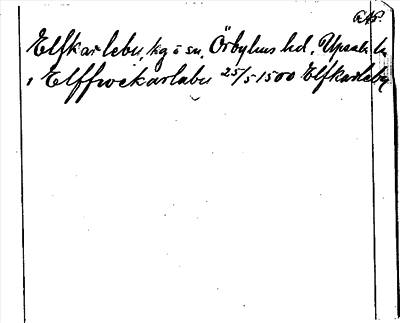 Elfkarleby, kg o sn, Örbyhus hd, Upsala ln
i Elffwekarlaby 25/5 1500 Elfkarleby